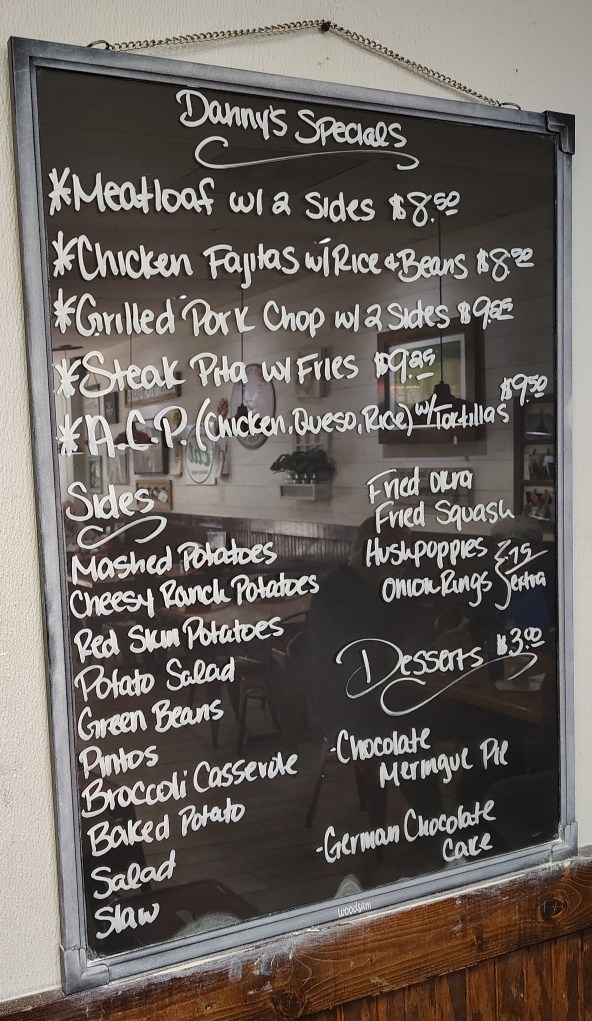 Danny's Specials
*Meatloaf w/ 2 Sides $8.50
*Chicken Fajitas w/ Rice & Beans $8.50
*Grilled Pork Chop w/ 2 Sides $9.25
*Steak Pita w/ Fries $9.25
*A.C.P. (Chicken, Queso, Rice) w/ Tortillas $9.50
Sides
Mashed Potatoes
Cheesy Ranch Potatoes
Red Skin Potatoes
Potato Salad
Green Beans
Pintos
Broccoli Casserole
Baked Potato
Salad
Slaw
Fried Okra
Fried Squash
Hushpoppies
Onion Rings
.75
extra
Desserts $3.00
-Chocolate
Meringue Pie
-German Chocolate
Cake
woodsam